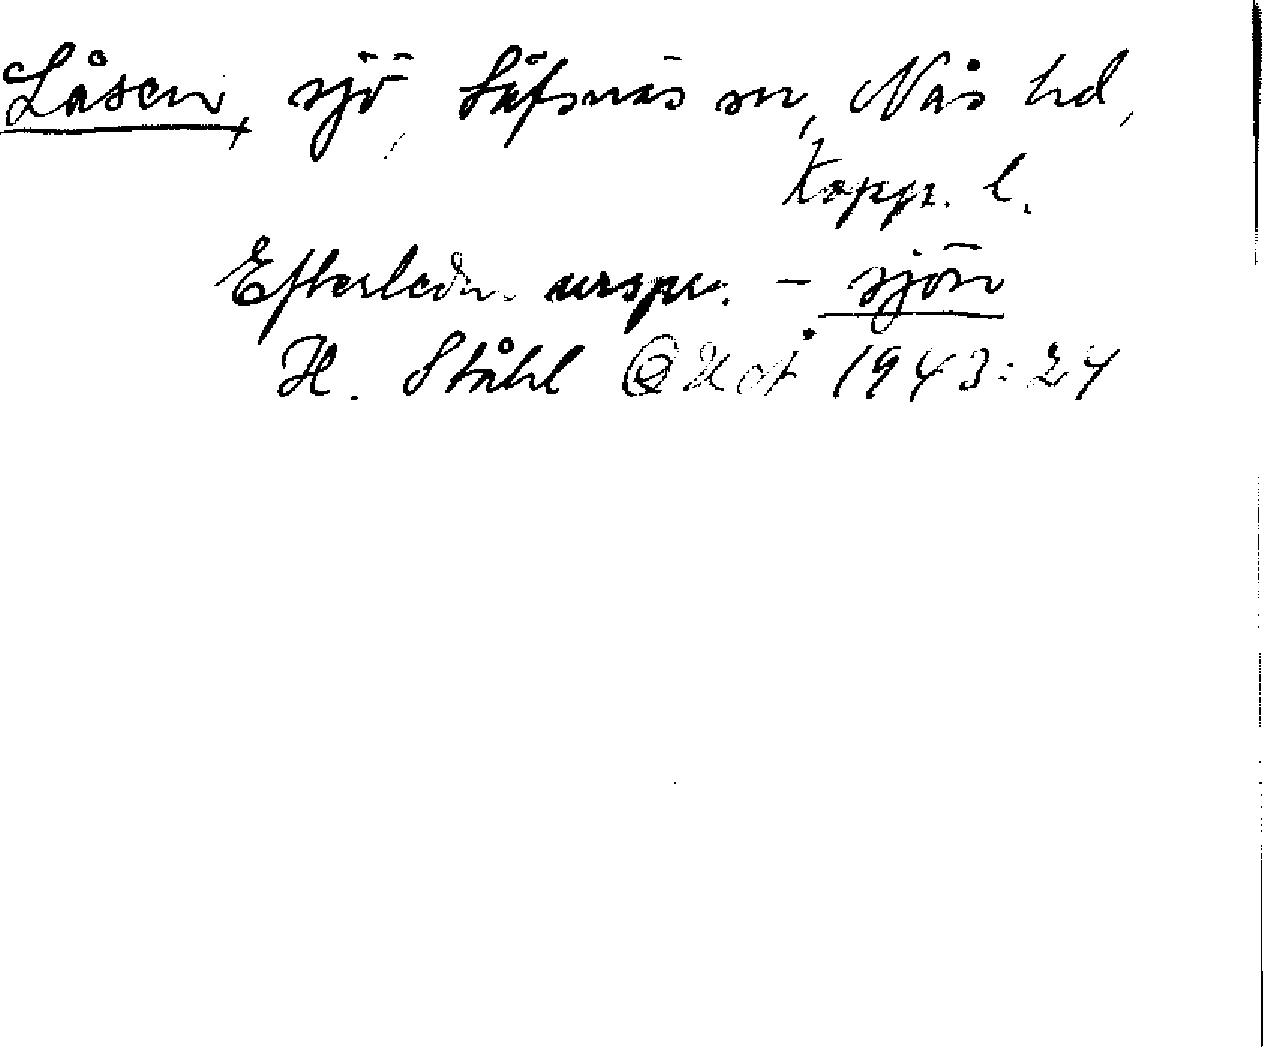 Låsen, sjö, Säfsnäs sn, Nås hd,
Kopp. l.
Efterleden urspr. - sjön
H. Ståhl 1943:24